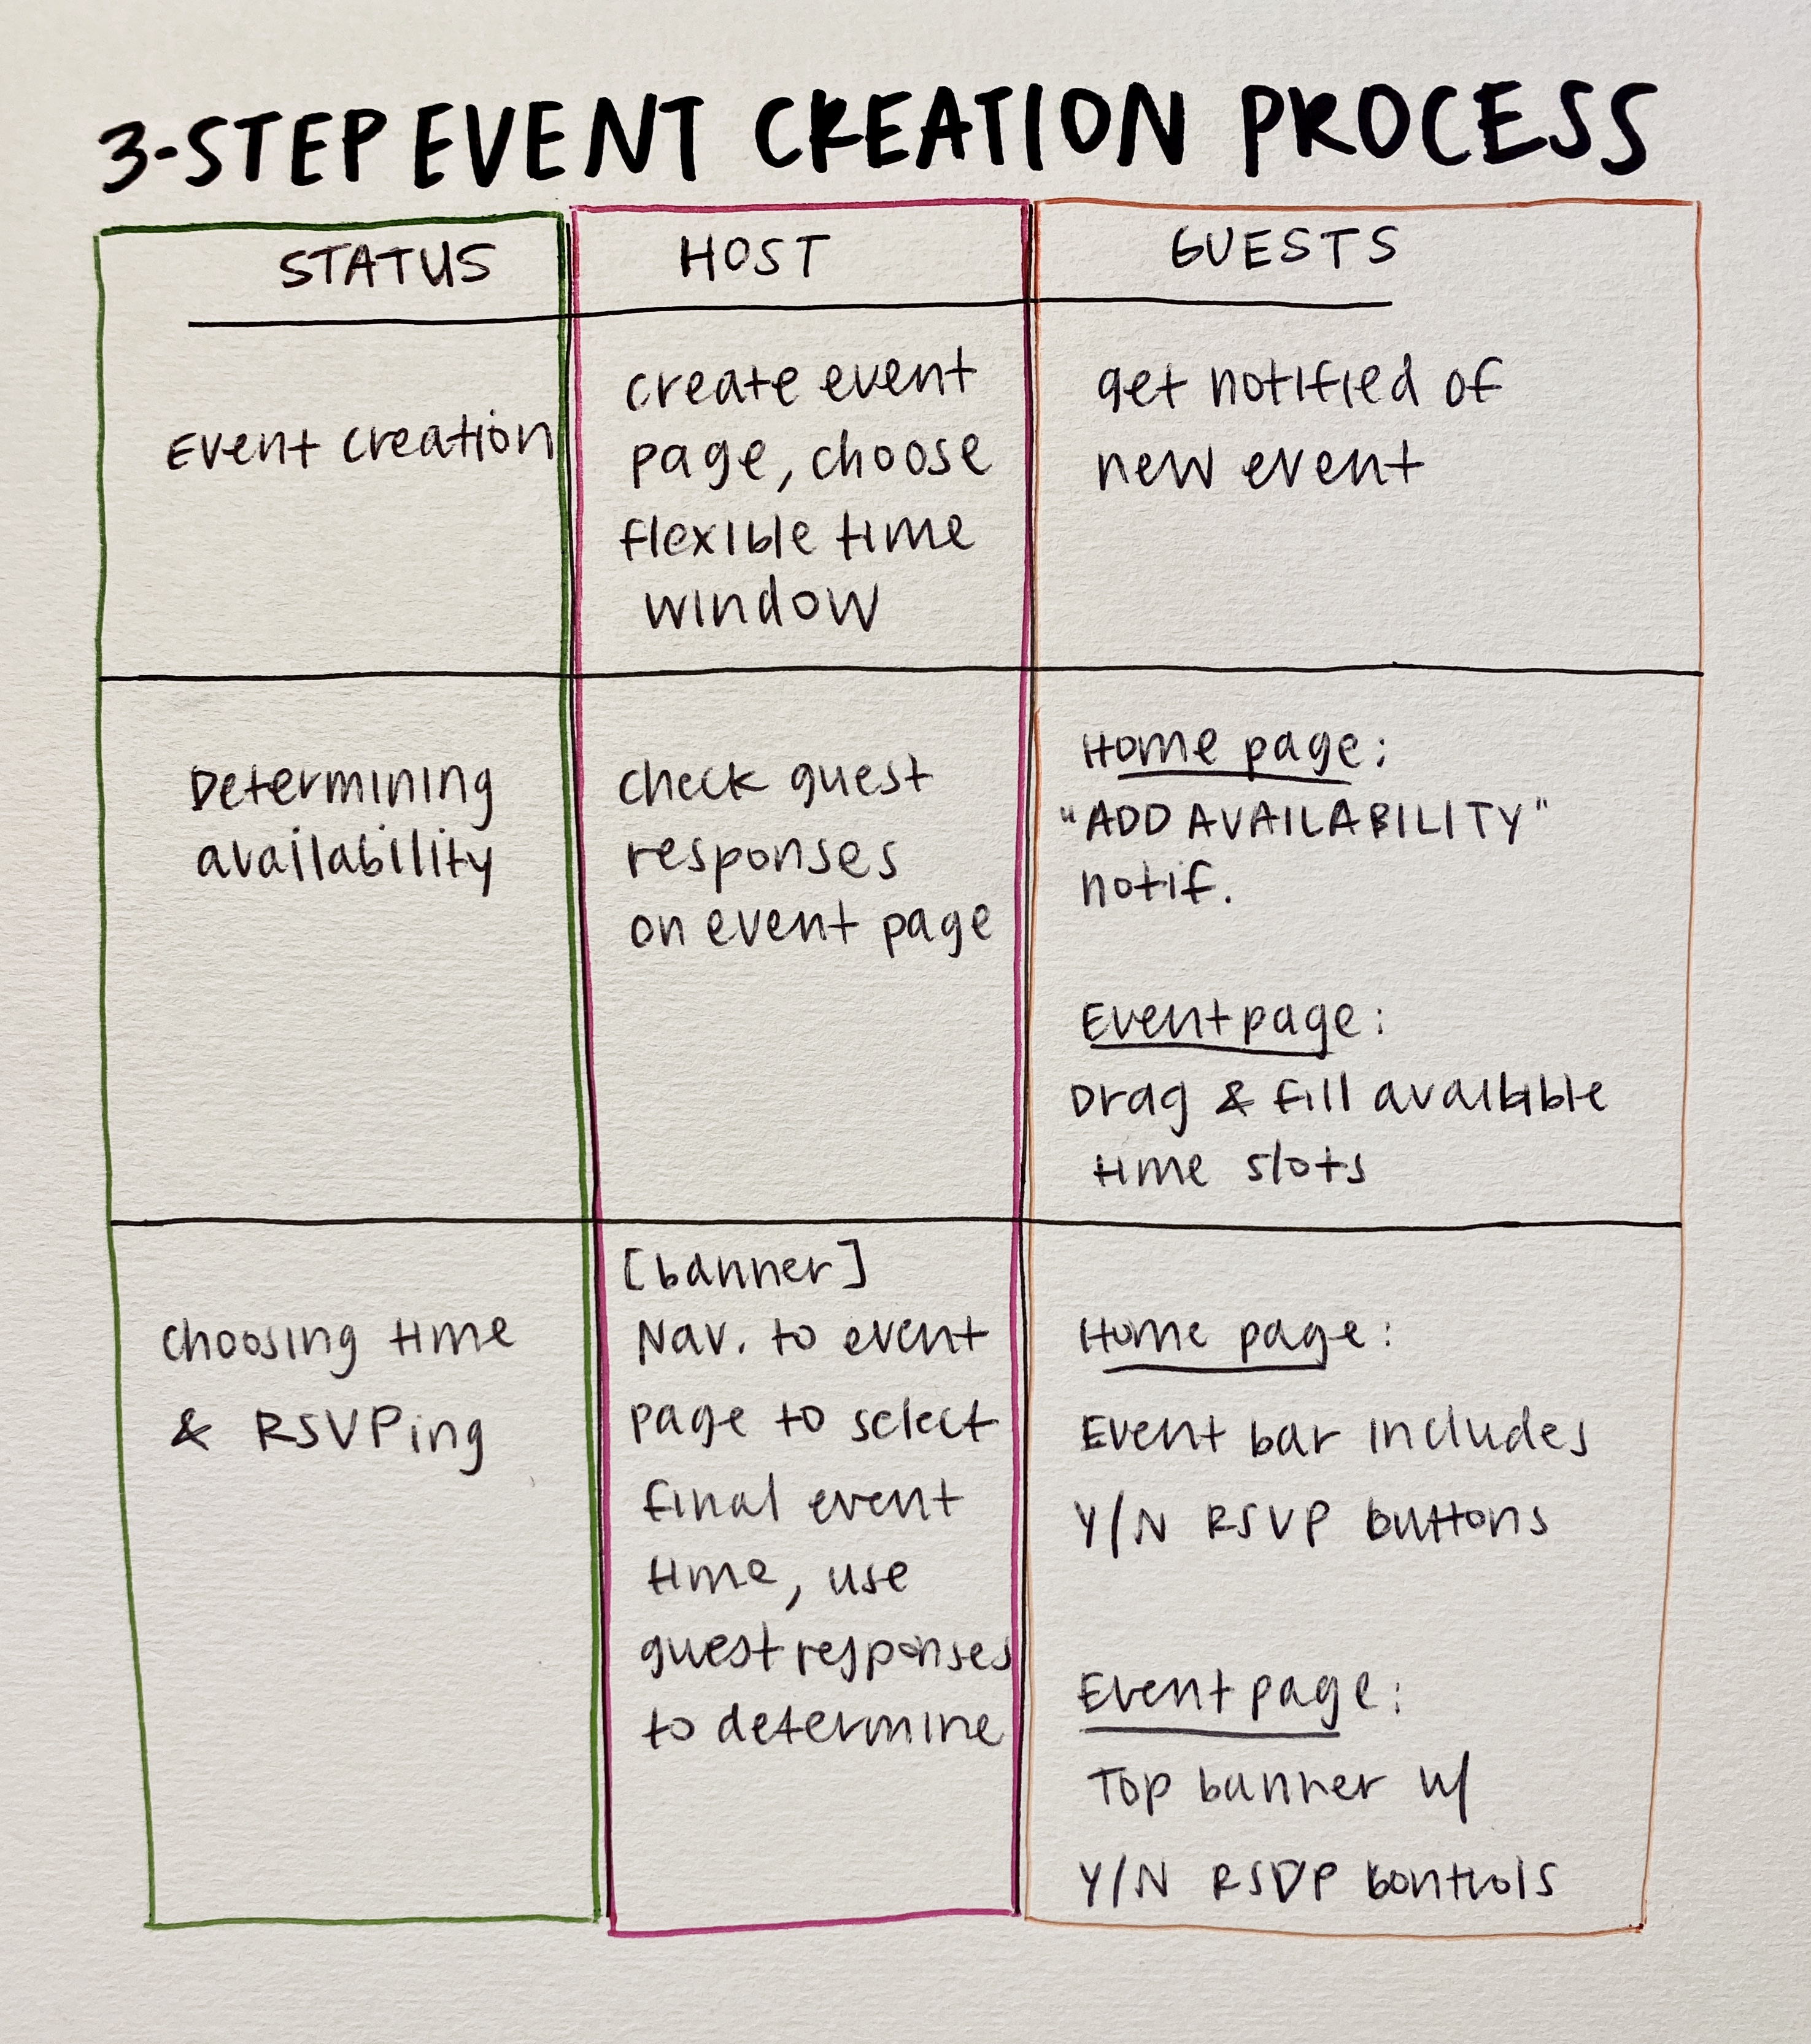 3-STEP EVENT CREATION PROCESS
STATUS
HOST
GUESTS
Event creation
create event
page, choose
flexible time
window
get notified of
new event
Determining
availability
check guest
responses
on event page
Home page:
"ADD AVAILABILITY"
notif.
Event page:
Drag & fill available
time slots
choosing time
& RSVPing
[banner]
Nav. to event
page to select
final event
time, use
guest responses
to determine
Home page:
Event bar includes
Y/N RSVP buttons
Event page:
Top banner w/
Y/N RSDP bontrols